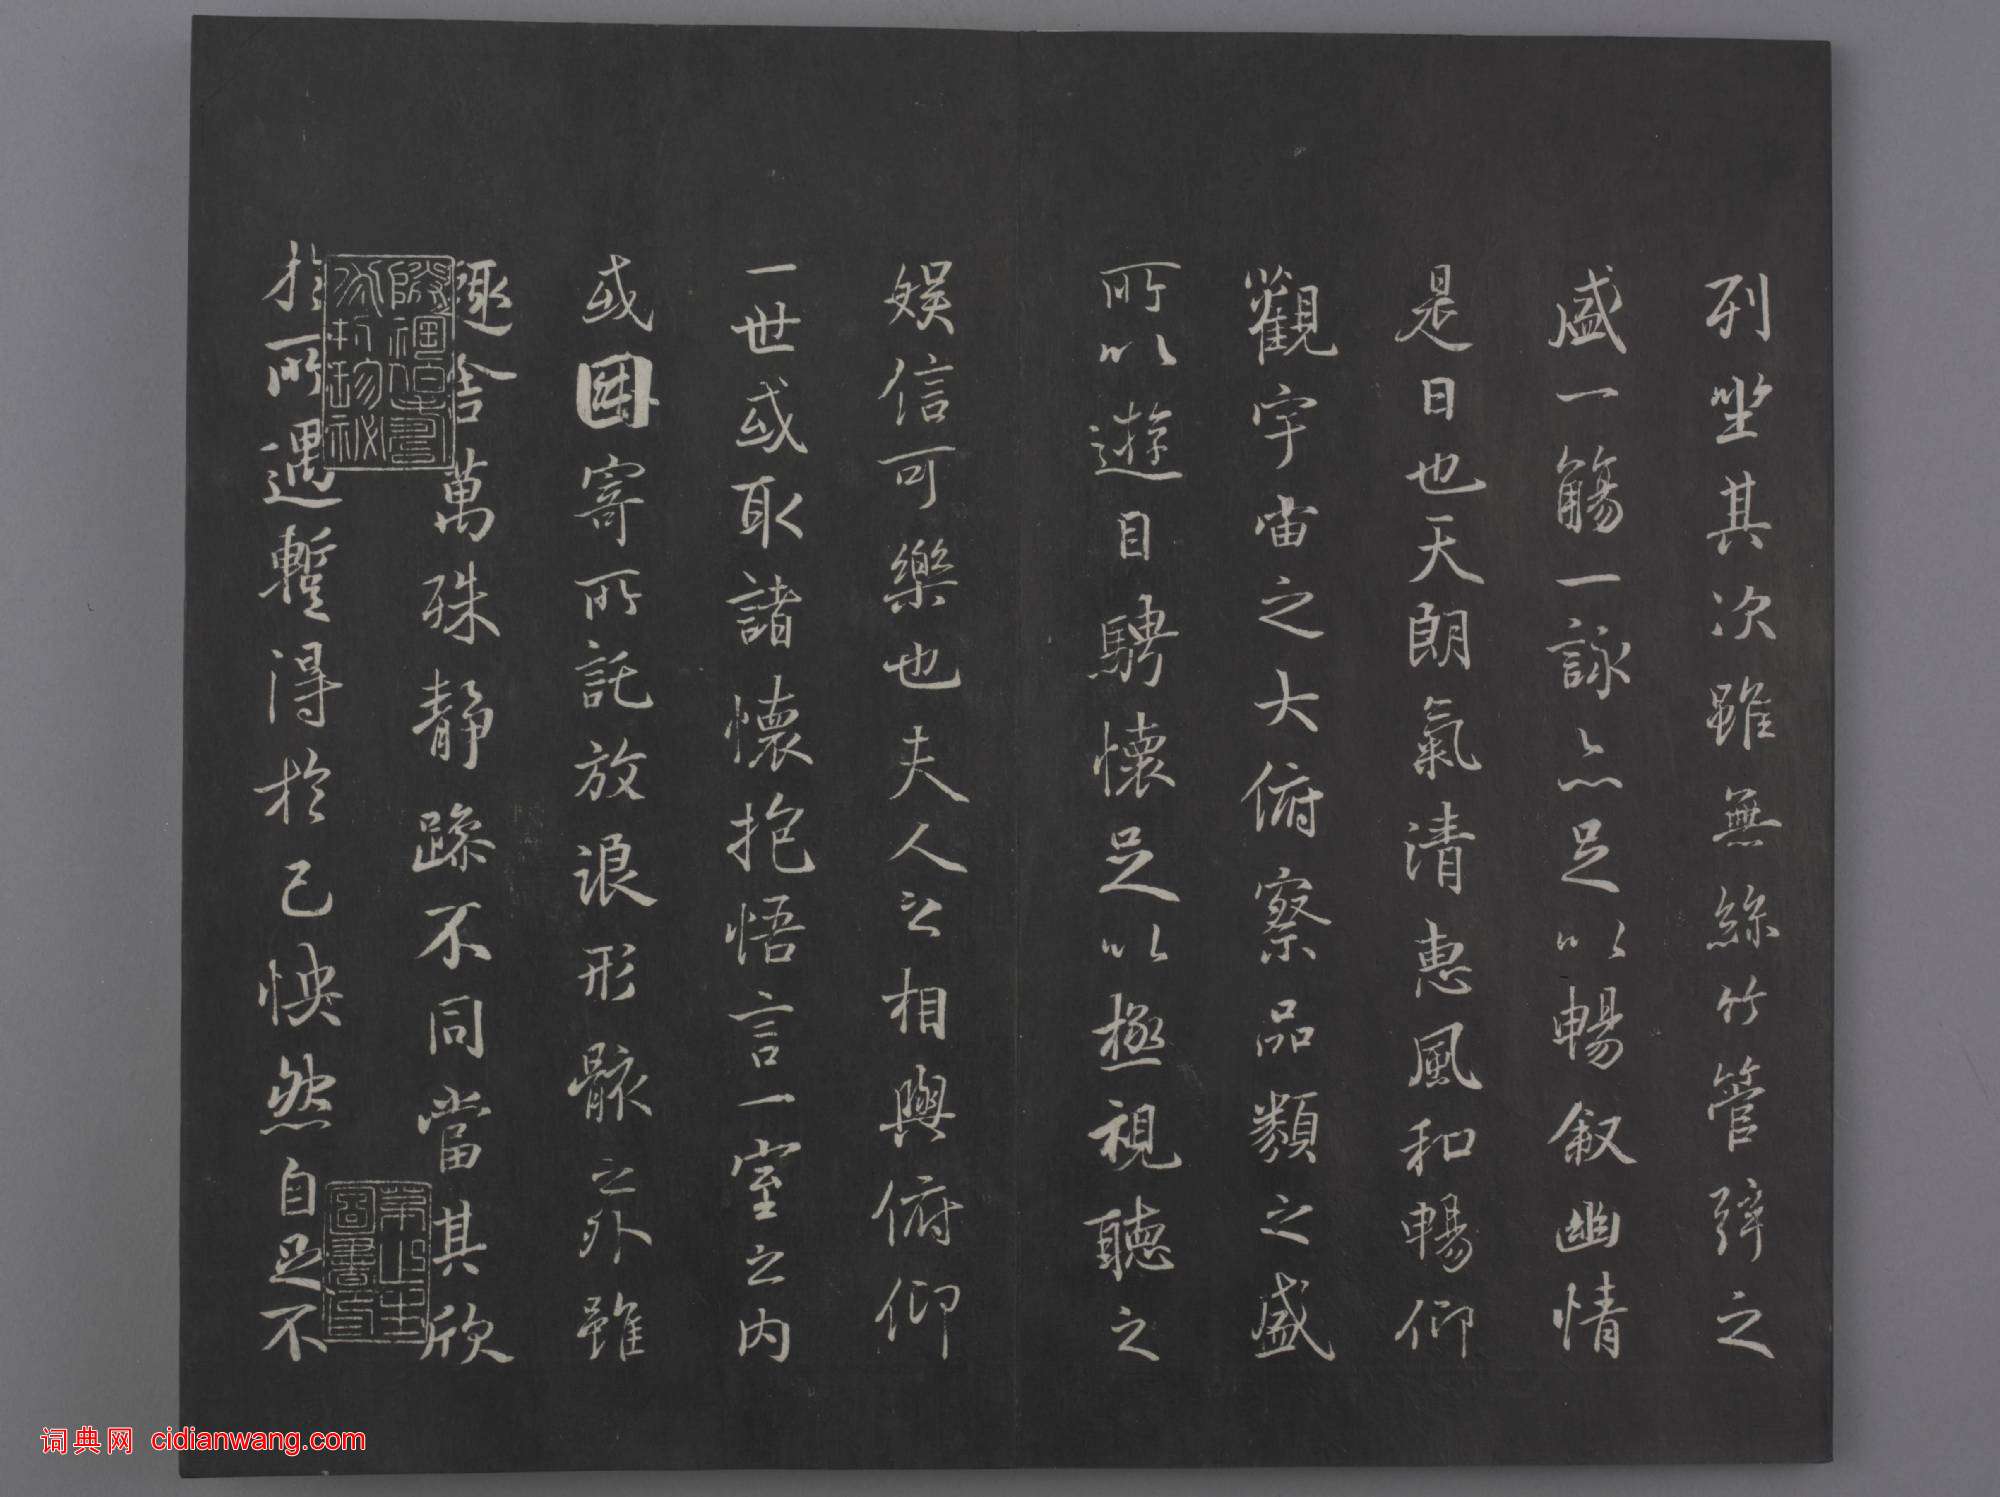 列坐其次雖無絲竹管弦之
盛一觴一詠亦足以暢敘幽情
是日也天朗氣清惠風和暢仰
觀宇宙之大俯察品類之盛
所以遊目騁懷足以極視聽之
娛信可樂也夫人之相與俯仰
一世或取諸懷抱悟言一室之內
或因寄所託放浪形骸之外雖
趣舍萬殊靜躁不同當其欣
於所遇暫得於己怏然自足不
词典网 cidianwang.com